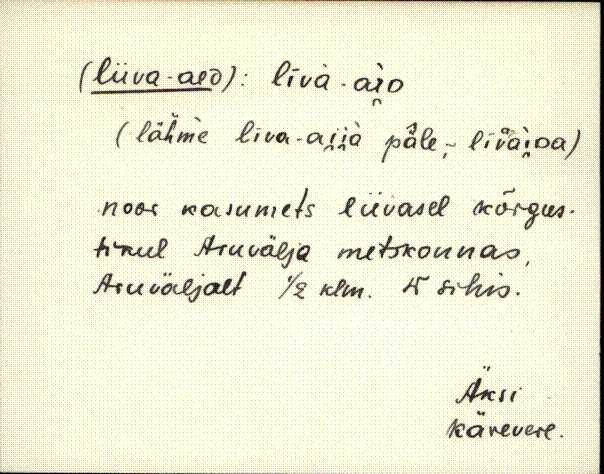 (liiva-aed): līvà-ai̯D
(lähme līva-ai̯i̯à päle, ~ līvài̯Da)
noor kasumets liivasel kõrgus-
tikul Aruvälja metskonnas,
Aruväljalt 1/2 klm. W sihis.
Äksi
Kärevere.